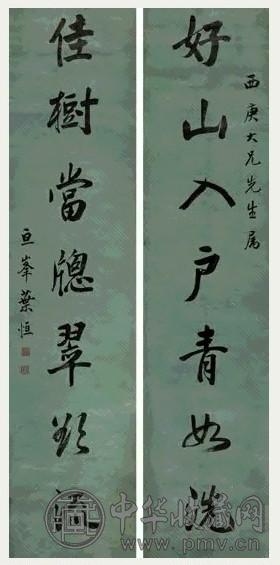 西庚大兄先生属
好山入户青如洗
佳樹當牕翠欲
亘峯葉恒
中华收藏网
www.pmv.cn